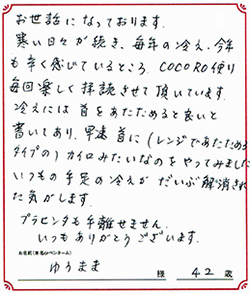 お世話になっております。
寒い日々が続き、毎年の冷え、今年
も辛く感じているところ、COCORO便り
毎回楽しく拝読させて頂いています。
冷えには首をあたためると良いと
書いてあり、早速首に(レンジであたためる
タイプの)カイロみたいなのをやってみました
いつもの手足の冷えがだいぶ解消され
た気がします。
プラセンタも手離せません。
いつもありがとうございます。
お名前(※ペンネーム)
ゆうまま 様 42歳